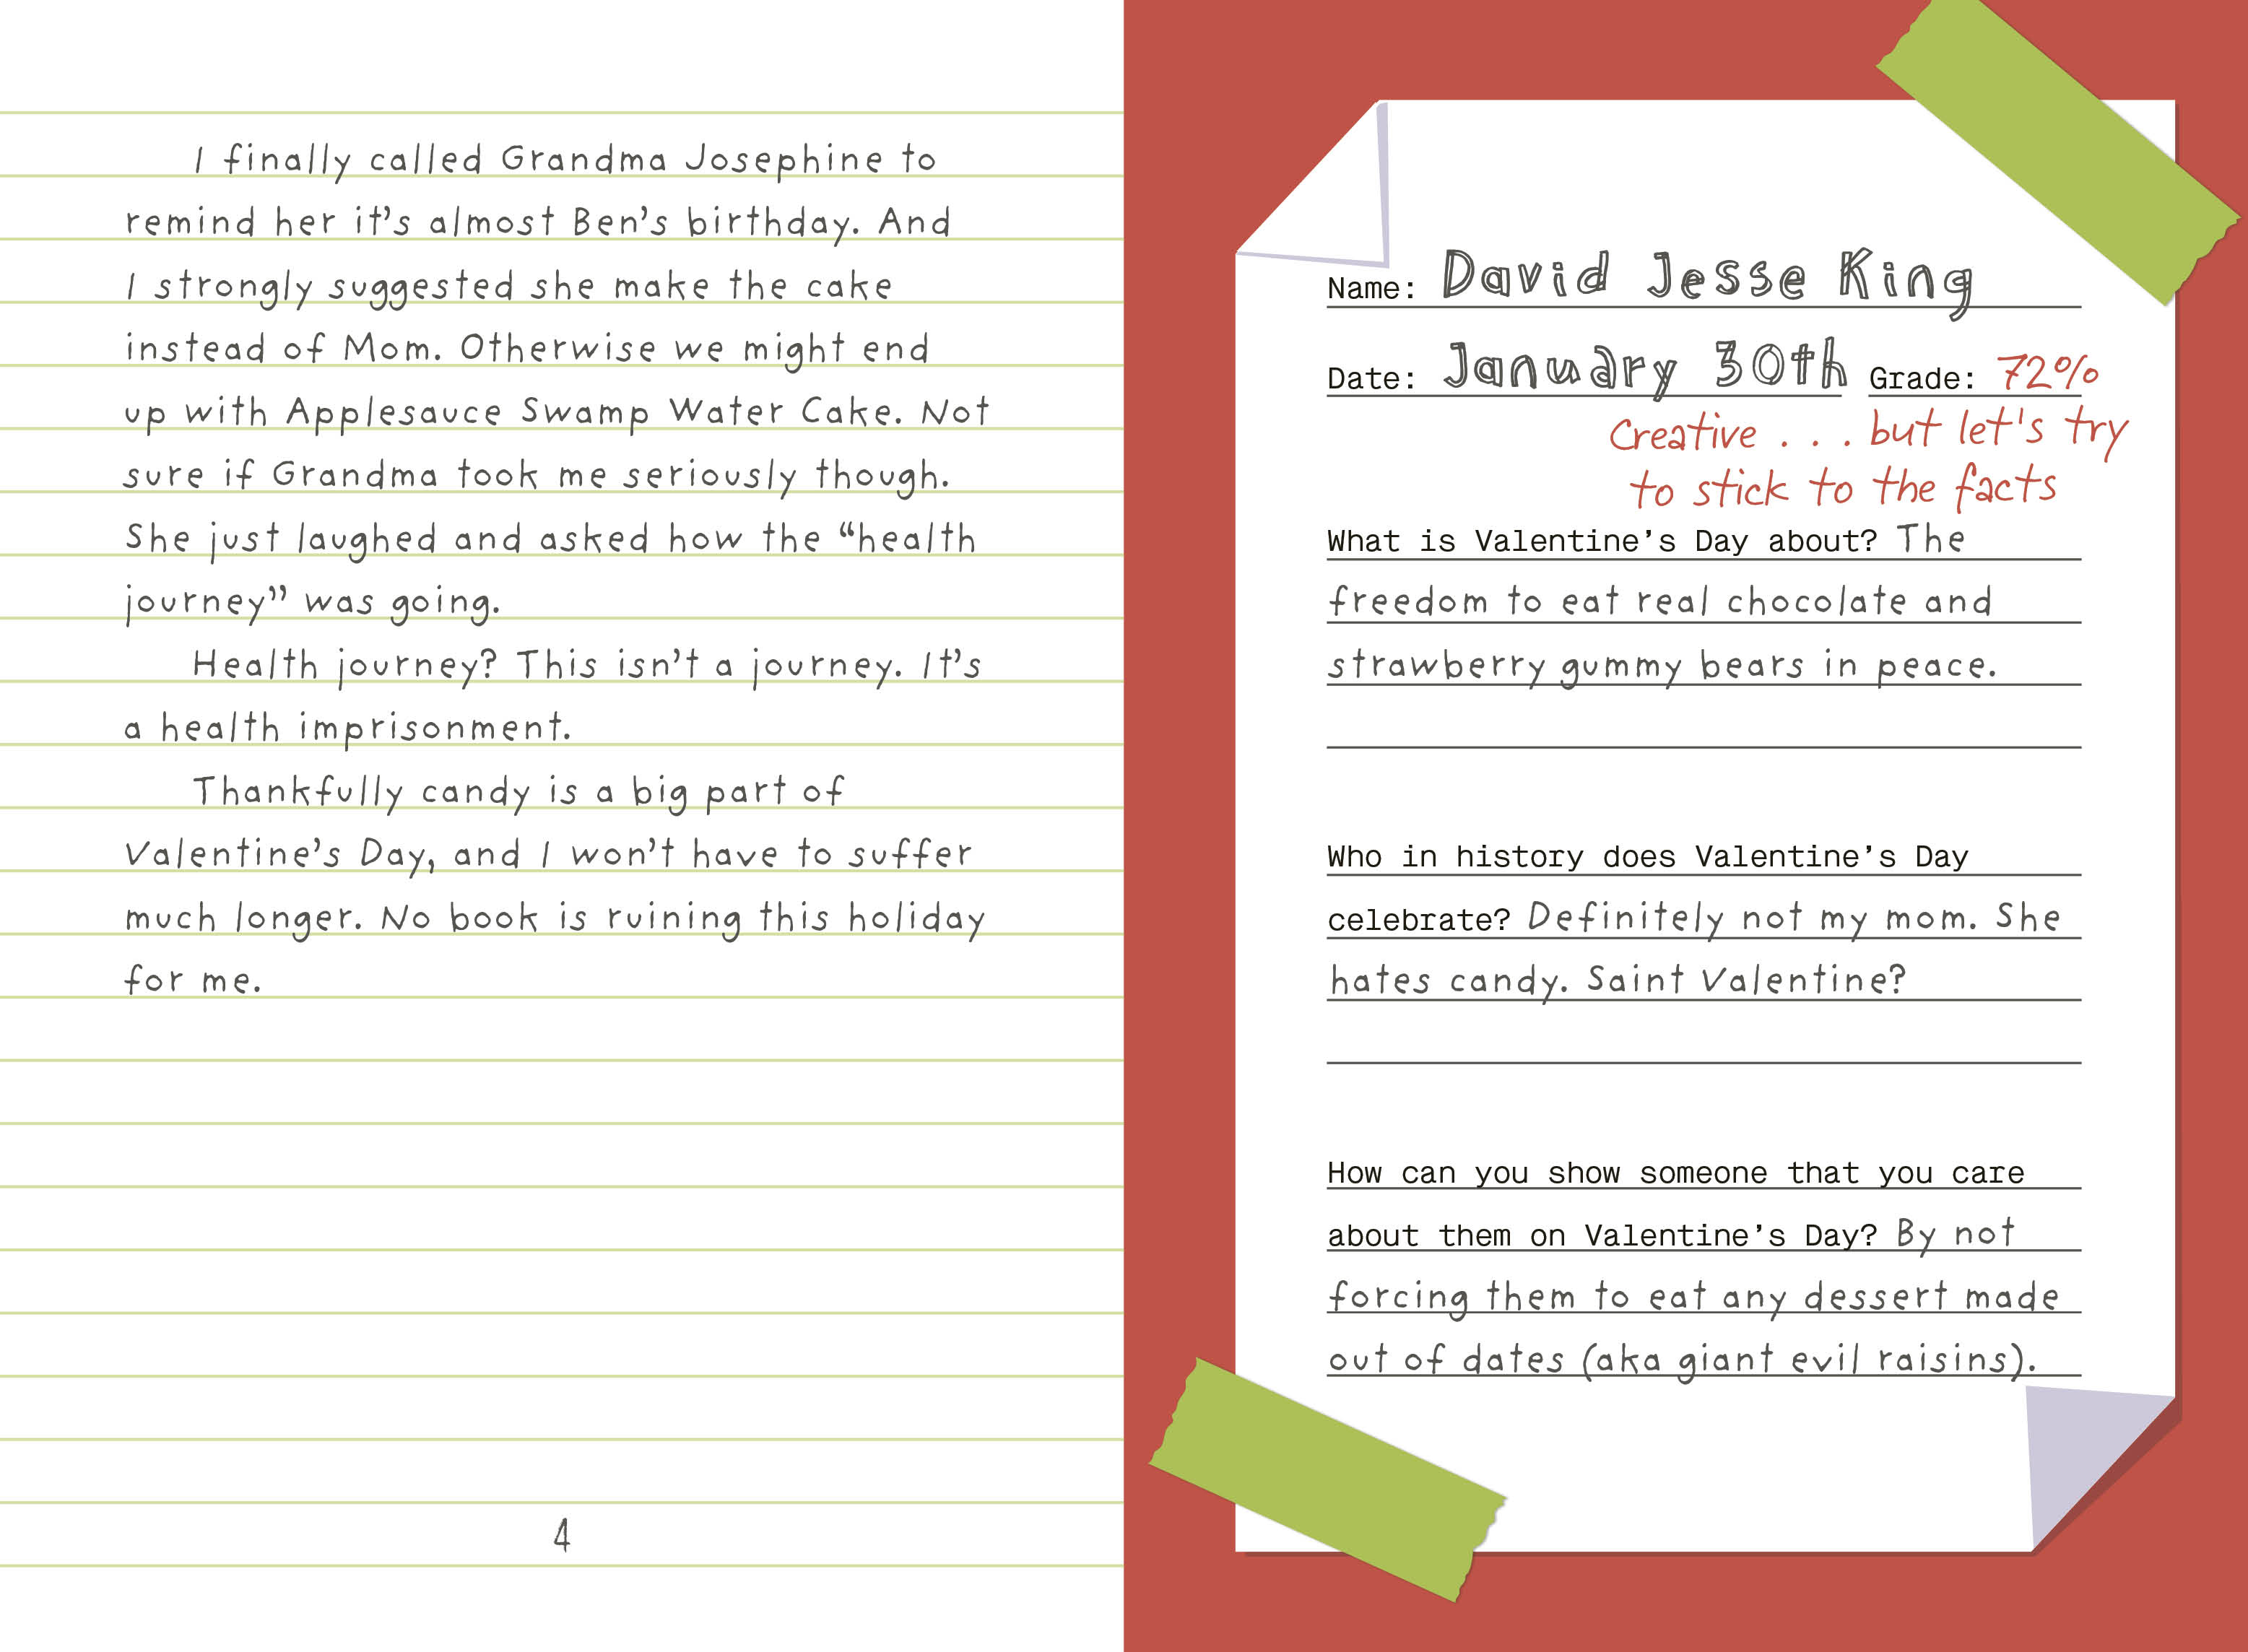 I finally called Grandma Josephine to
remind her it's almost Ben's birthday. And
I strongly suggested she make the cake
instead of Mom. Otherwise we might end
up with Applesauce Swamp Water Cake. Not
sure if Grandma took me seriously though.
She just laughed and asked how the “health
journey” was going.
Health journey? This isn't a journey. It's
a health imprisonment.
Thankfully candy is a big part of
Valentine's Day, and I won't have to suffer
much longer. No book is ruining this holiday
for me.
4
Name: David Jesse King
Date: January 30th Grade: 72%
Creative . . . but let's try
to stick to the facts
What is Valentine's Day about? The
freedom to eat real chocolate and
strawberry gummy bears in peace.
Who in history does Valentine's Day
celebrate? Definitely not my mom. She
hates candy. Saint Valentine?
How can you show someone that you care
about them on Valentine's Day? By not
forcing them to eat any dessert made
out of dates (aka giant evil raisins).